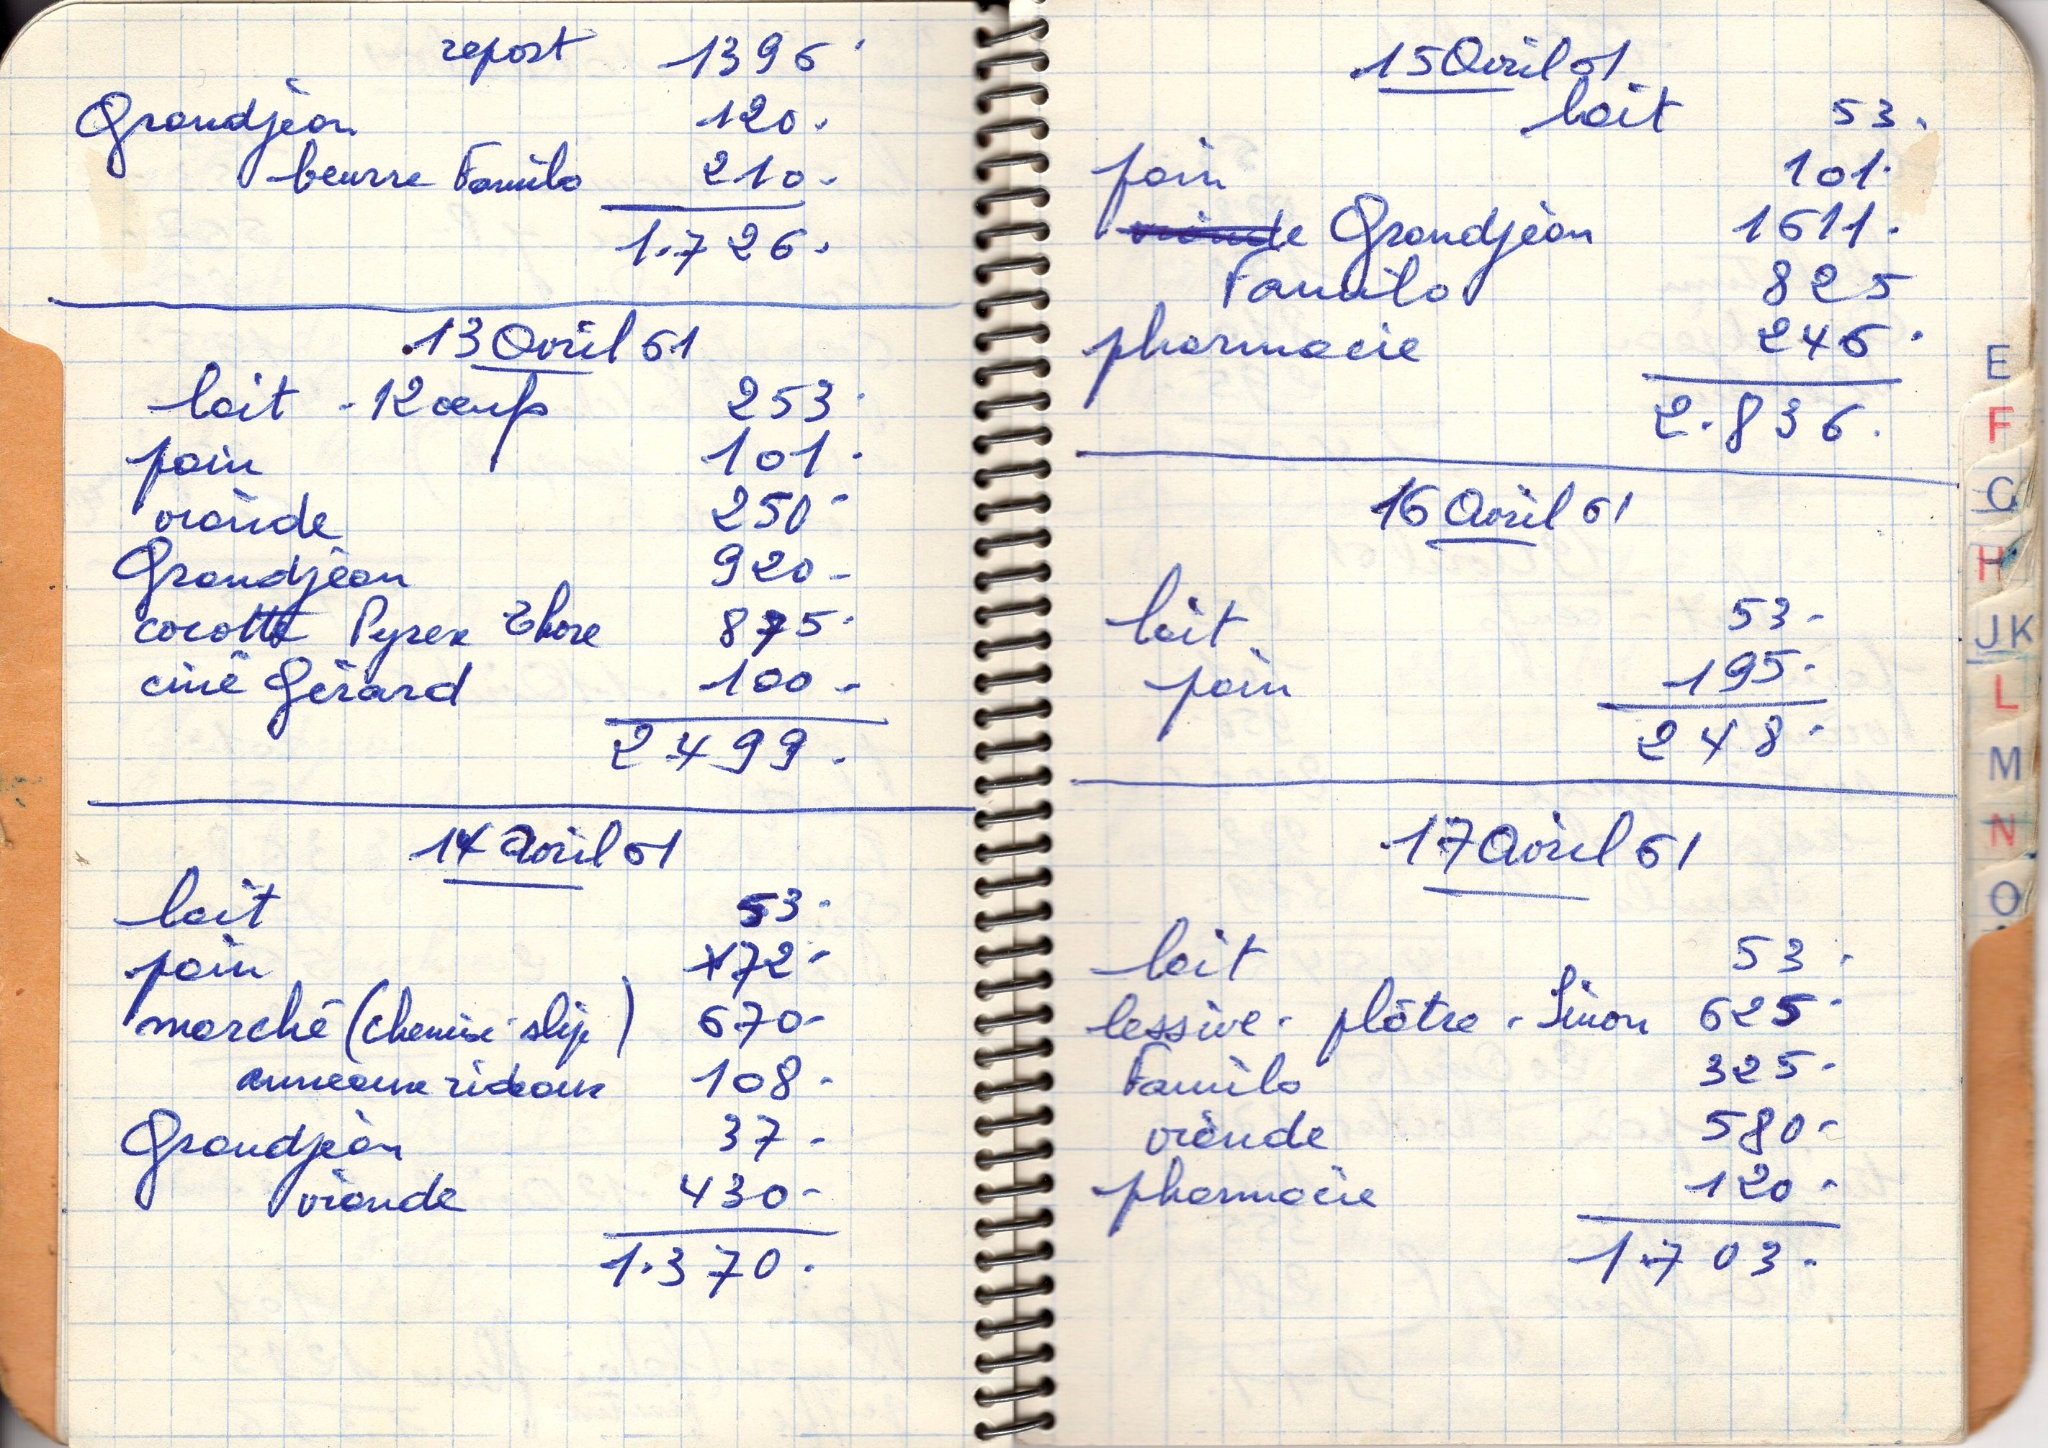 report 1396.
Grandjean 120.
beurre Familo 210.
1.726.
13 Avril 61
lait - 12 œufs 253.
pain 101.
viande 250-
Grandjean 920-
cocotte Pyrex 875.
ciné Gérard 100-
2.499.
14 Avril 61
lait 53.
pain 72-
marché (chemise-slip) 670-
anneaux rideaux 108.
Grandjean 37-
viande 430-
1.370.
15 Avril 61
lait 53.
pain 101.
viande Grandjean 1611.
Familo 825
pharmacie 246.
2.836.
16 Avril 61
lait 53-
pain 195.
248.
17 Avril 61
lait 53.
lessive - plâtre - Simon 625-
Familo 325-
viande 580-
pharmacie 120-
1.703.
E
F
G
H
JK
L
M
N
O